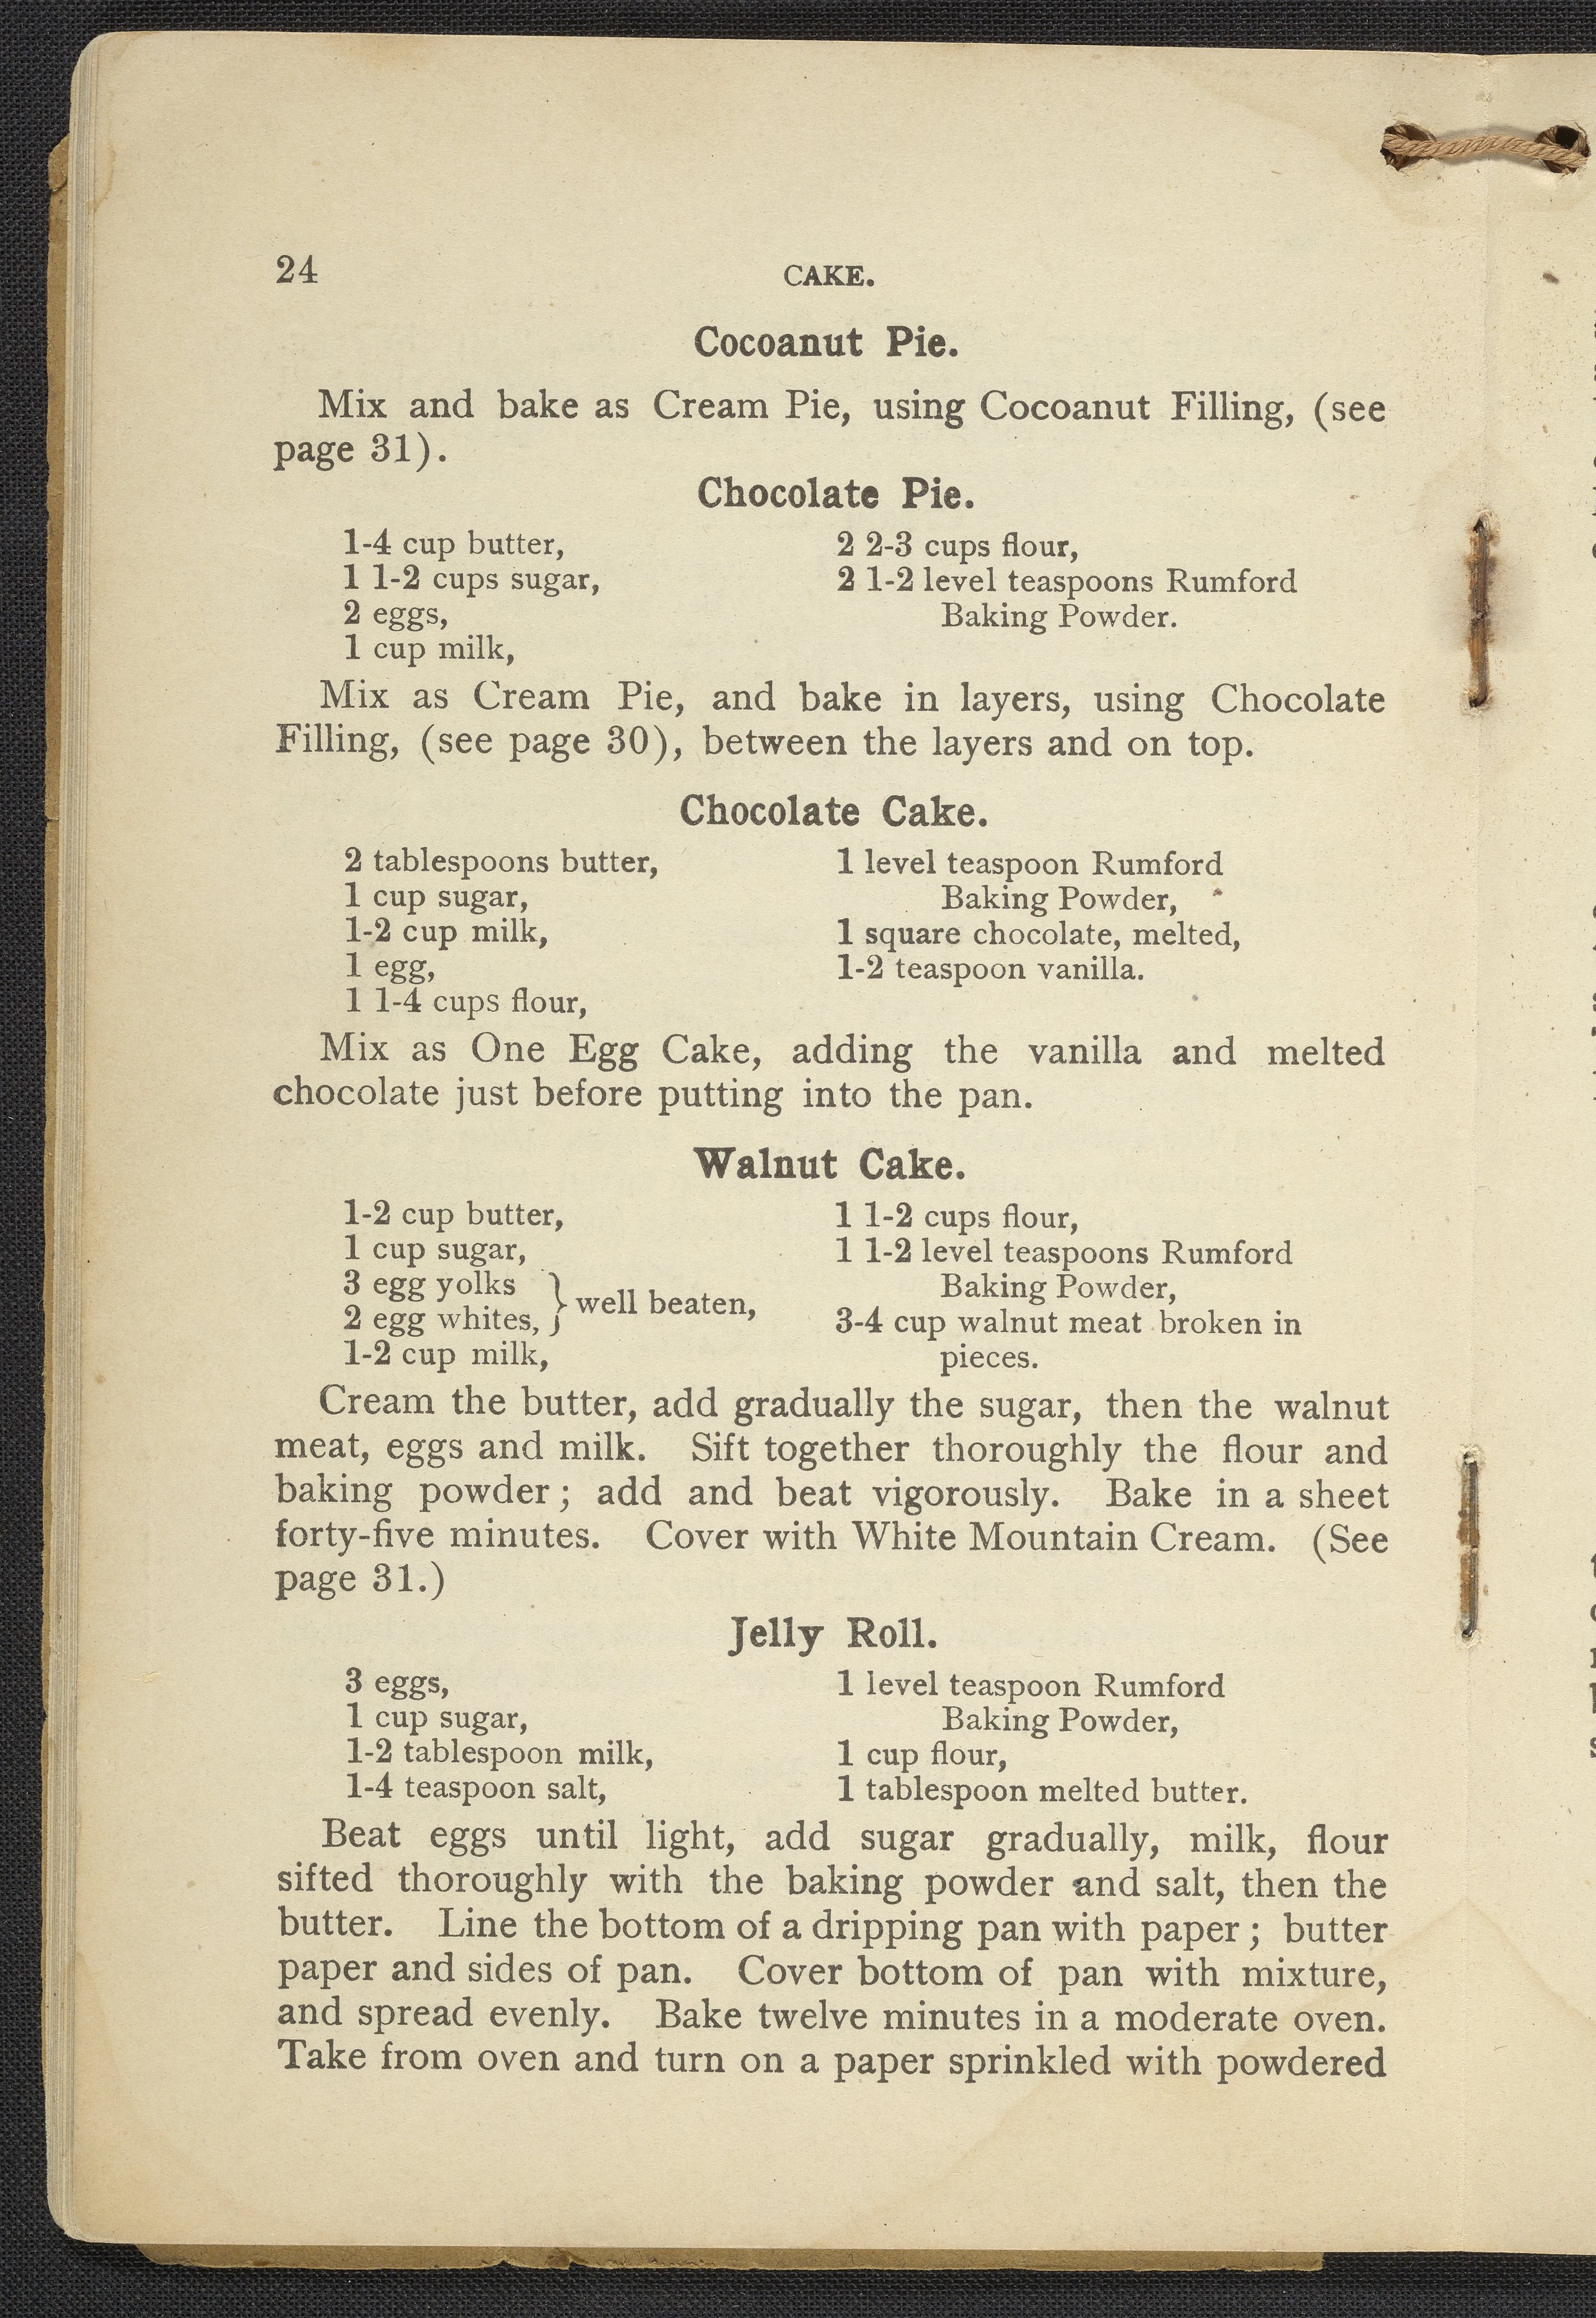 24
CAKE.
Cocoanut Pie.
Mix and bake as Cream Pie, using Cocoanut Filling, (see
page 31).
Chocolate Pie.
1-4 cup butter,
1 1-2 cups sugar,
2 eggs,
1 cup milk,
2 2-3 cups flour,
2 1-2 level teaspoons Rumford
Baking Powder.
Mix as Cream Pie, and bake in layers, using Chocolate
Filling, (see page 30), between the layers and on top.
Chocolate Cake.
2 tablespoons butter,
1 cup sugar,
1-2 cup milk,
1 egg,
1 1-4 cups flour,
1 level teaspoon Rumford
Baking Powder,
1 square chocolate, melted,
1-2 teaspoon vanilla.
Mix as One Egg Cake, adding the vanilla and melted
chocolate just before putting into the pan.
Walnut Cake.
1-2 cup butter,
1 cup sugar,
3 egg yolks
2 egg whites, } well beaten,
1-2 cup milk,
1 1-2 cups flour,
1 1-2 level teaspoons Rumford
Baking Powder,
3-4 cup walnut meat broken in
pieces.
Cream the butter, add gradually the sugar, then the walnut
meat, eggs and milk. Sift together thoroughly the flour and
baking powder; add and beat vigorously. Bake in a sheet
forty-five minutes. Cover with White Mountain Cream. (See
page 31.)
Jelly Roll.
3 eggs,
1 cup sugar,
1-2 tablespoon milk,
1-4 teaspoon salt,
1 level teaspoon Rumford
Baking Powder,
1 cup flour,
1 tablespoon melted butter.
Beat eggs until light, add sugar gradually, milk, flour
sifted thoroughly with the baking powder and salt, then the
butter. Line the bottom of a dripping pan with paper; butter
paper and sides of pan. Cover bottom of pan with mixture,
and spread evenly. Bake twelve minutes in a moderate oven.
Take from oven and turn on a paper sprinkled with powdered